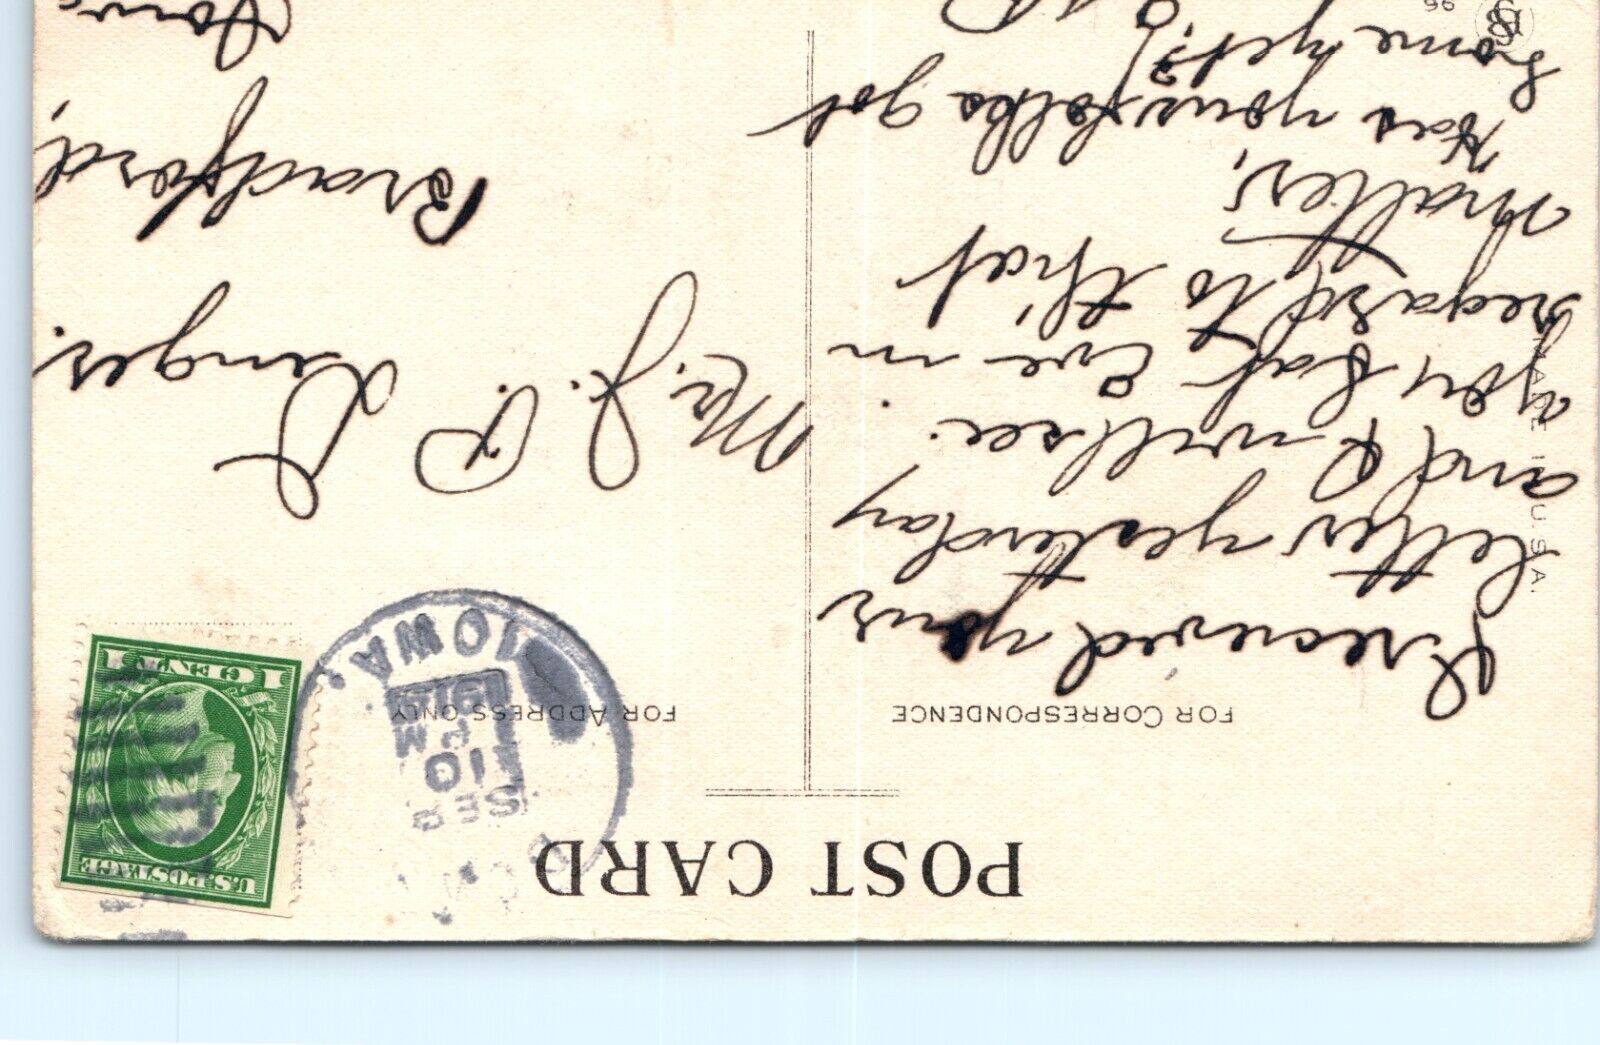 POST CARD
FOR CORRESPONDENCE
FOR ADDRESS ONLY
U.S. POSTAGE
1 CENT 1
SEP
10
PM
IOWA.
I received your
letter yesterday
and I will see
you Sat Eve in
regard to that
matter,
Has your folks got
home yet?
Mr. J. P.
Bradford,
MADE IN U.S.A.
96